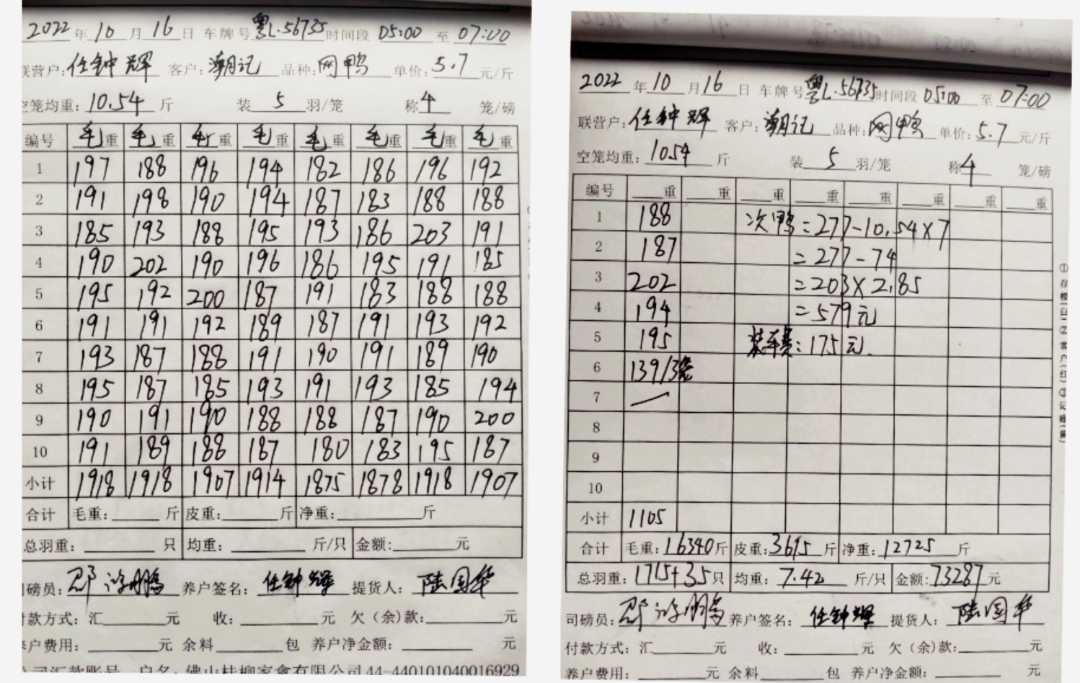 2022年10月16日 车牌号粤L.56735时间段 05:00 至 07:00
联营户:任钟辉 客户:潮记 品种:网鸭 单价:5.7元/斤
空笼均重:10.54斤 装5羽/笼 称4笼/磅
编号 毛重 毛重 毛重 毛重 毛重 毛重 毛重 毛重
1 197 188 196 194 182 186 196 192
2 191 198 190 194 187 183 188 188
3 185 193 188 195 193 186 203 191
4 190 202 190 196 186 195 191 185
5 195 192 200 187 191 183 188 188
6 191 191 192 189 187 191 193 192
7 193 187 188 191 190 191 189 190
8 195 187 185 193 191 193 185 194
9 190 191 190 188 188 187 190 200
10 191 189 188 187 180 183 195 187
小计 1918 1918 1907 1914 1875 1878 1918 1907
合计 毛重:____斤 皮重:____斤 净重:____斤
总羽重:____只 均重:____斤/只 金额:____元
司磅员: 养户签名:任钟辉 提货人:陆国华
付款方式:汇____元 收:____元 欠(余)款:____元
养户费用:____元 余料____包 养户净金额:____元
公司汇款账号 户名:佛山桂柳家禽有限公司44-440101040016929
2022年10月16日 车牌号粤L.56735时间段 05:00 至 07:00
联营户:任钟辉 客户:潮记 品种:网鸭 单价:5.7元/斤
空笼均重:10.54斤 装5羽/笼 称4笼/磅
编号 __重 __重 __重 __重 __重 __重 __重 __重
1 188 次鸭=277-10.54×7
2 187 =277-74
3 202 =203×2.85
4 194 =579元
5 195 装车费:175元.
6 139/3笼
7
8
9
10
小计 1105
合计 毛重:16340斤 皮重:3615斤 净重:12725斤
总羽重:1715+35只 均重:7.42斤/只 金额:73287元
司磅员: 养户签名:任钟辉 提货人:陆国华
付款方式:汇____元 收:____元 欠(余)款:____元
养户费用:____元 余料____包 养户净金额:____元